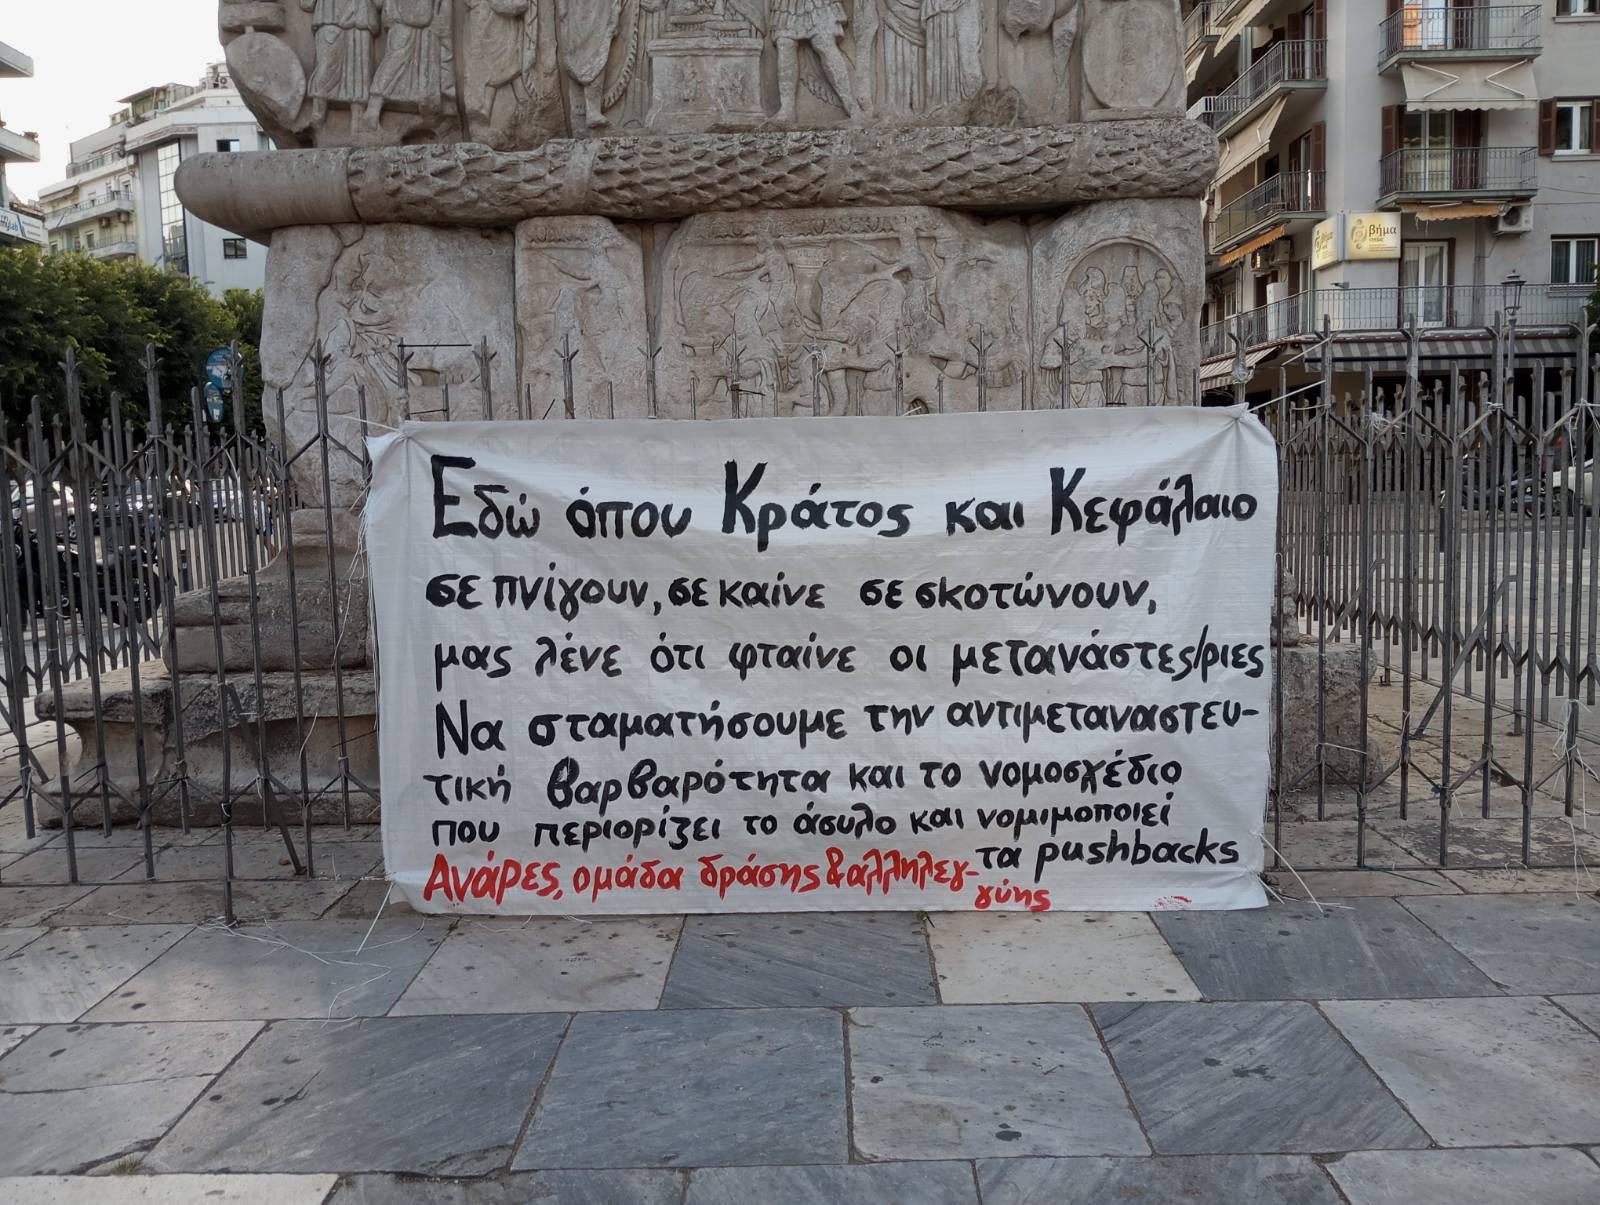 Εδώ όπου Κράτος και Κεφάλαιο
σε πνίγουν, σε καίνε σε σκοτώνουν,
μας λένε ότι φταίνε οι μετανάστες/ριες
Να σταματήσουμε την αντιμεταναστευ-
τική βαρβαρότητα και το νομοσχέδιο
που περιορίζει το άσυλο και νομιμοποιεί
τα pushbacks
Ανάρες, ομάδα δράσης & αλληλεγ-
γύης
βήμα